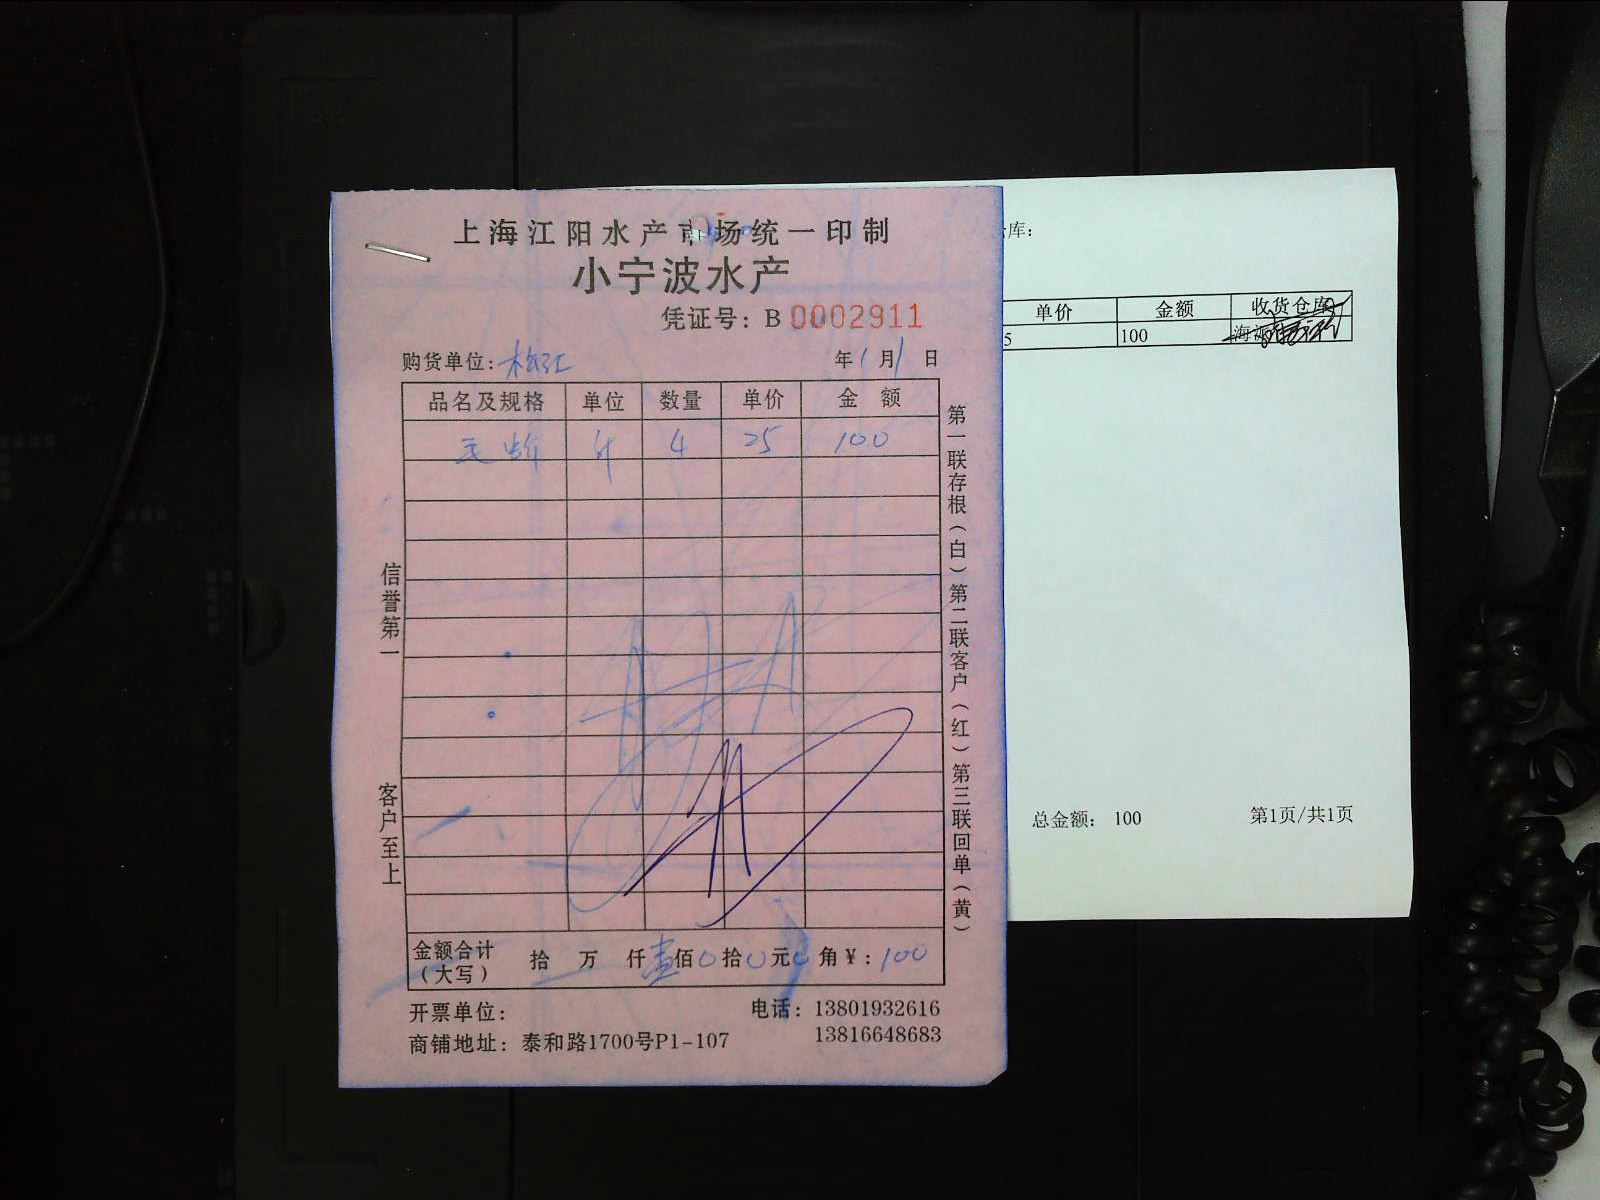 上海江阳水产市场统一印制
小宁波水产
凭证号：B 0002911
购货单位：松江 年1月1日
品名及规格 单位 数量 单价 金额
毛蚶 斤 4 25 100
信誉第一
客户至上
第一联存根（白）第二联客户（红）第三联回单（黄）
金额合计（大写） 拾 万 仟壹佰0拾0元0角¥：100
开票单位： 电话：13801932616
13816648683
商铺地址：泰和路1700号P1-107
库：
单价 金额 收货仓库
5 100 海
总金额： 100 第1页/共1页